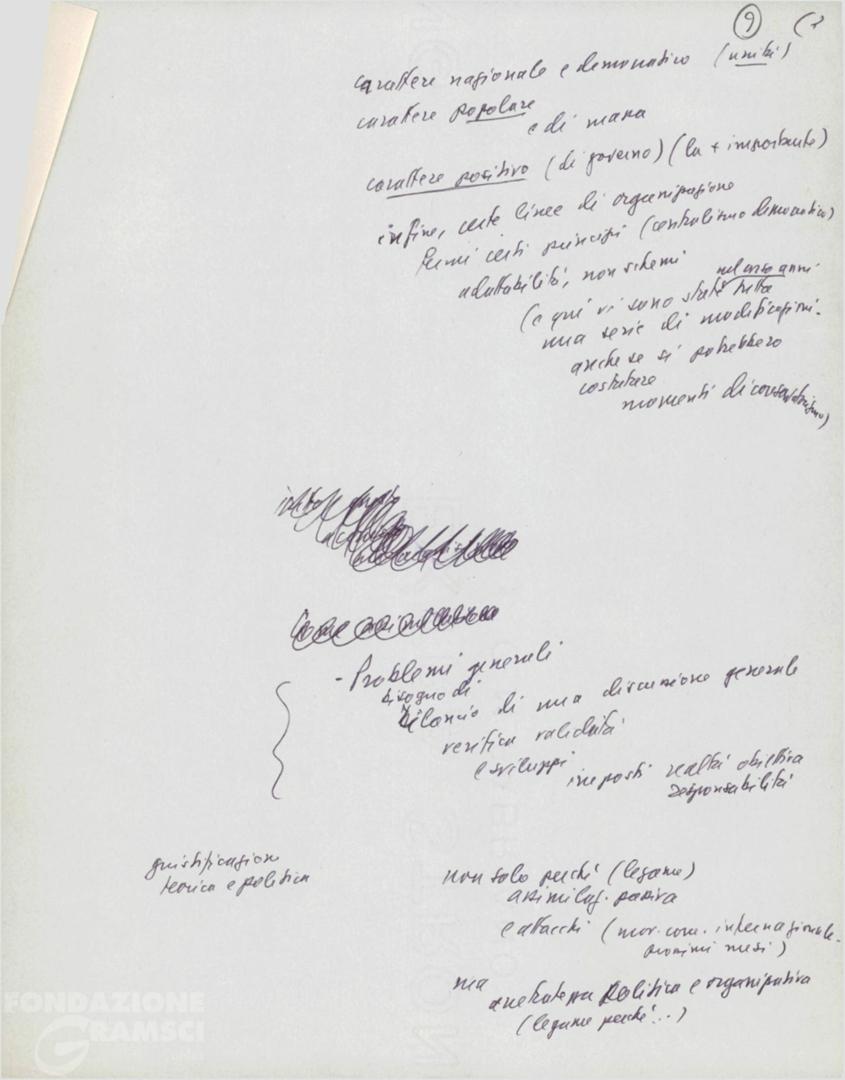 9 (2
carattere nazionale e democratico (unità)
carattere popolare
e di massa
carattere positivo (di governo) (la + importante)
infine, certe linee di organizzazione
fermi certi principi (centralismo democratico)
adattabilità, non schemi
nel corso anni
(e qui vi sono state tutta
una serie di modificazioni.
anche se si potrebbero
costatare
momenti di conservatorismo)
- Problemi generali
bisogno di
bilancio di una discussione generale
verifica validità
e sviluppi
imposti realtà obiettiva
responsabilità
giustificazione
teorica e politica
non solo perché (legame)
assimilaz. passiva
e attacchi (mov. com. internazionale.
prossimi mesi)
ma
arretratezza politica e organizzativa
(legame perché...)
FONDAZIONE
GRAMSCI